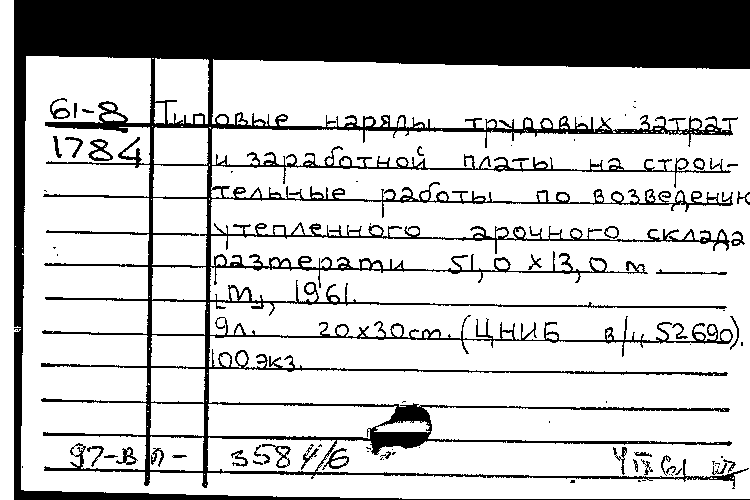 61-8 Типовые наряды трудовых затрат
1784 и заработной платы на строи-
тельные работы по возведению
утепленного арочного склада
размерами 51,0 х 13,0 м.
[М], 1961.
9л. 20х30см. (ЦНИБ в/ч 52690).
100 экз.
97-В п- 3584/6 4 IX 61